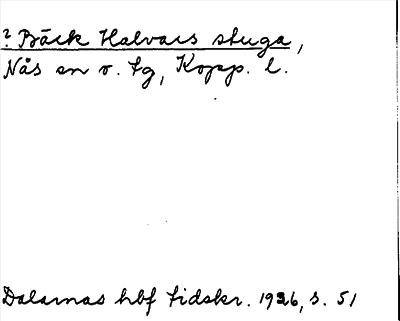 ? Bäck Halvars stuga,
Nås sn o. tg, Kopp. l.
Dalarnas hbf tidskr. 1926, s. 51